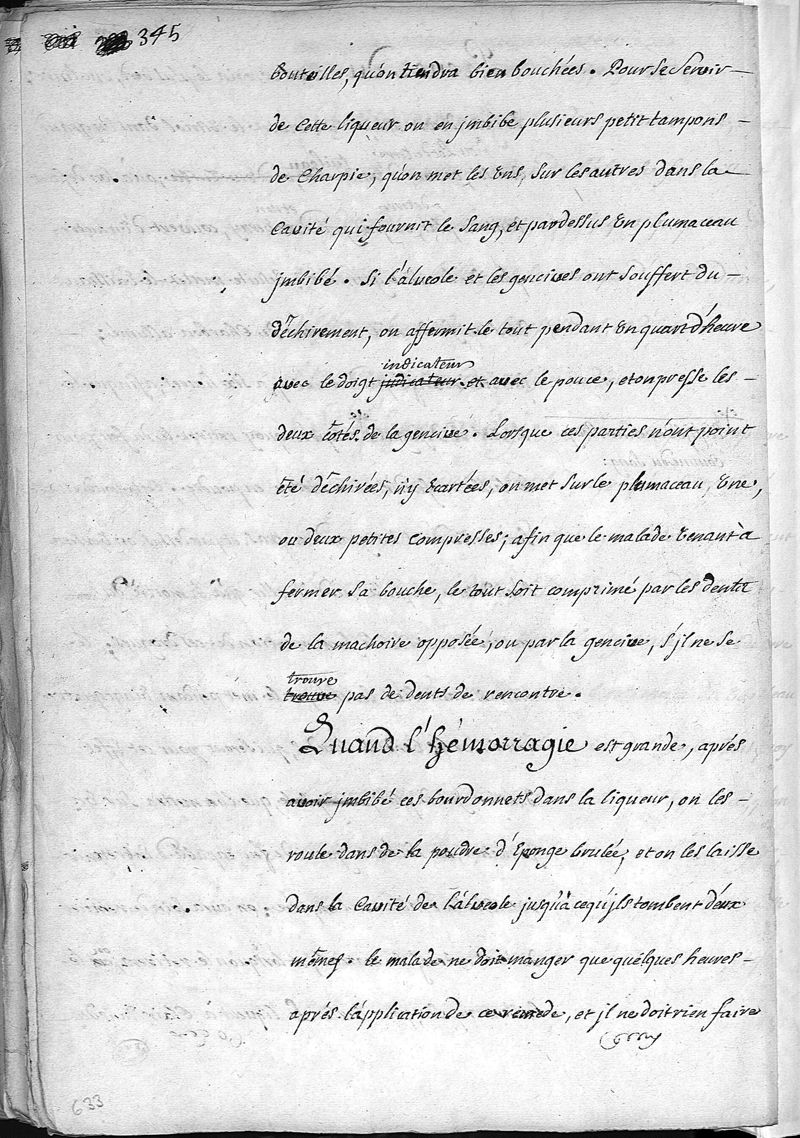 345
bouteilles, qu'on tiendra bien bouchées. Pour se servir –
de cette liqueur on en jmbibe plusieurs petit tampons –
de Charpie, qu'on met les Uns, sur les autres dans la –
Cavité qui fournit le Sang, et par dessus Un plumaceau
jmbibé. Si l'álveole et les gencives ont souffert du –
déchirement, on affermit le tout pendant Un quart d'heure
indicateur
avec le doigt judicateur et avec le pouce, et on presse les –
deux côtés de la gencive. Lorsque ces parties n'ont point
été déchirées, n'y Ecartées, on met sur le plumaceau, Une,
ou deux petites compresses; afin que le malade Venant à
fermer Sa bouche, le tout soit comprimé par les dents
de la machoire opposée, ou par la gencive, s'jl ne se
trouve
trouve pas de dents de rencontre.
Quand l'hémorragie est grande, aprés
avoir jmbibé ces bourdonnets dans la liqueur, on les –
roule dans de la poudre d'Eponge brulée, et on les laisse
dans la Cavité de l'álveole jusqu'à ce qu'jls tombent d'eux
mêmes. le malade ne doit manger que quelques heures –
aprés l'application de ce remede, et jl ne doit rien faire
633